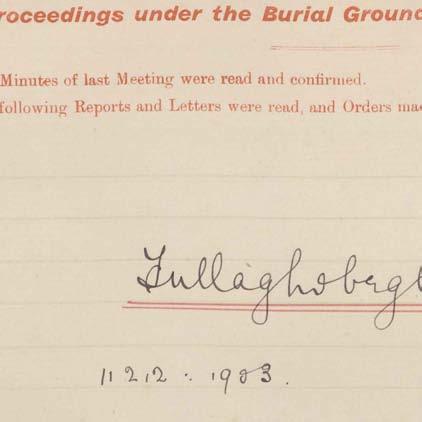 roceedings under the Burial Ground
Minutes of last Meeting were read and confirmed.
following Reports and Letters were read, and Orders mad
Tullaghobegl
11 212 . 1903.